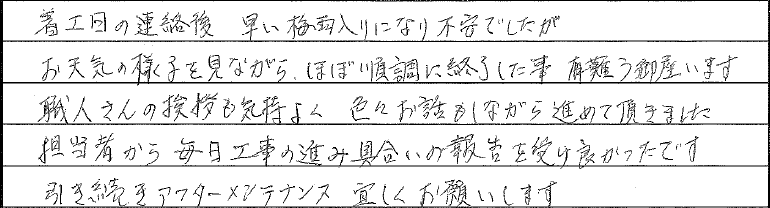 着工日の連絡後 早い梅雨入りになり不安でしたが
お天気の様子を見ながら、ほぼ順調に終了した事 有難う御座います
職人さんの挨拶も気持よく 色々お話もしながら進めて頂きました
担当者から毎日工事の進み具合いの報告を受け良かったです
引き続きアフターメンテナンス 宜しくお願いします